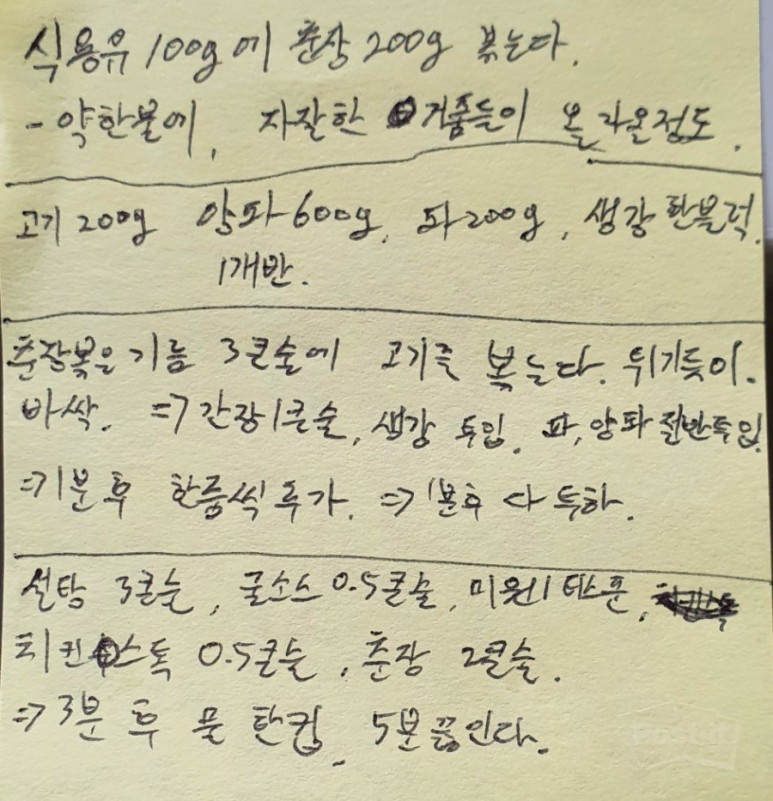 식용유 100g에 춘장 200g 볶는다.
- 약한불에, 자잘한 거품들이 올라온정도.
고기 200g 양파 600g, 파 200g, 생강 한블럭.
1개반.
춘장볶은 기름 3큰술에 고기를 볶는다. 튀기듯이.
바싹. => 간장1큰술, 생강 투입. 파, 양파 절반투입.
=> 1분 후 한줌씩 추가. => 1분후 다 투하.
설탕 3큰술, 굴소스 0.5큰술, 미원1티스푼,
치킨스톡 0.5큰술, 춘장 2큰술.
=> 3분 후 물 한컵. 5분 끓인다.